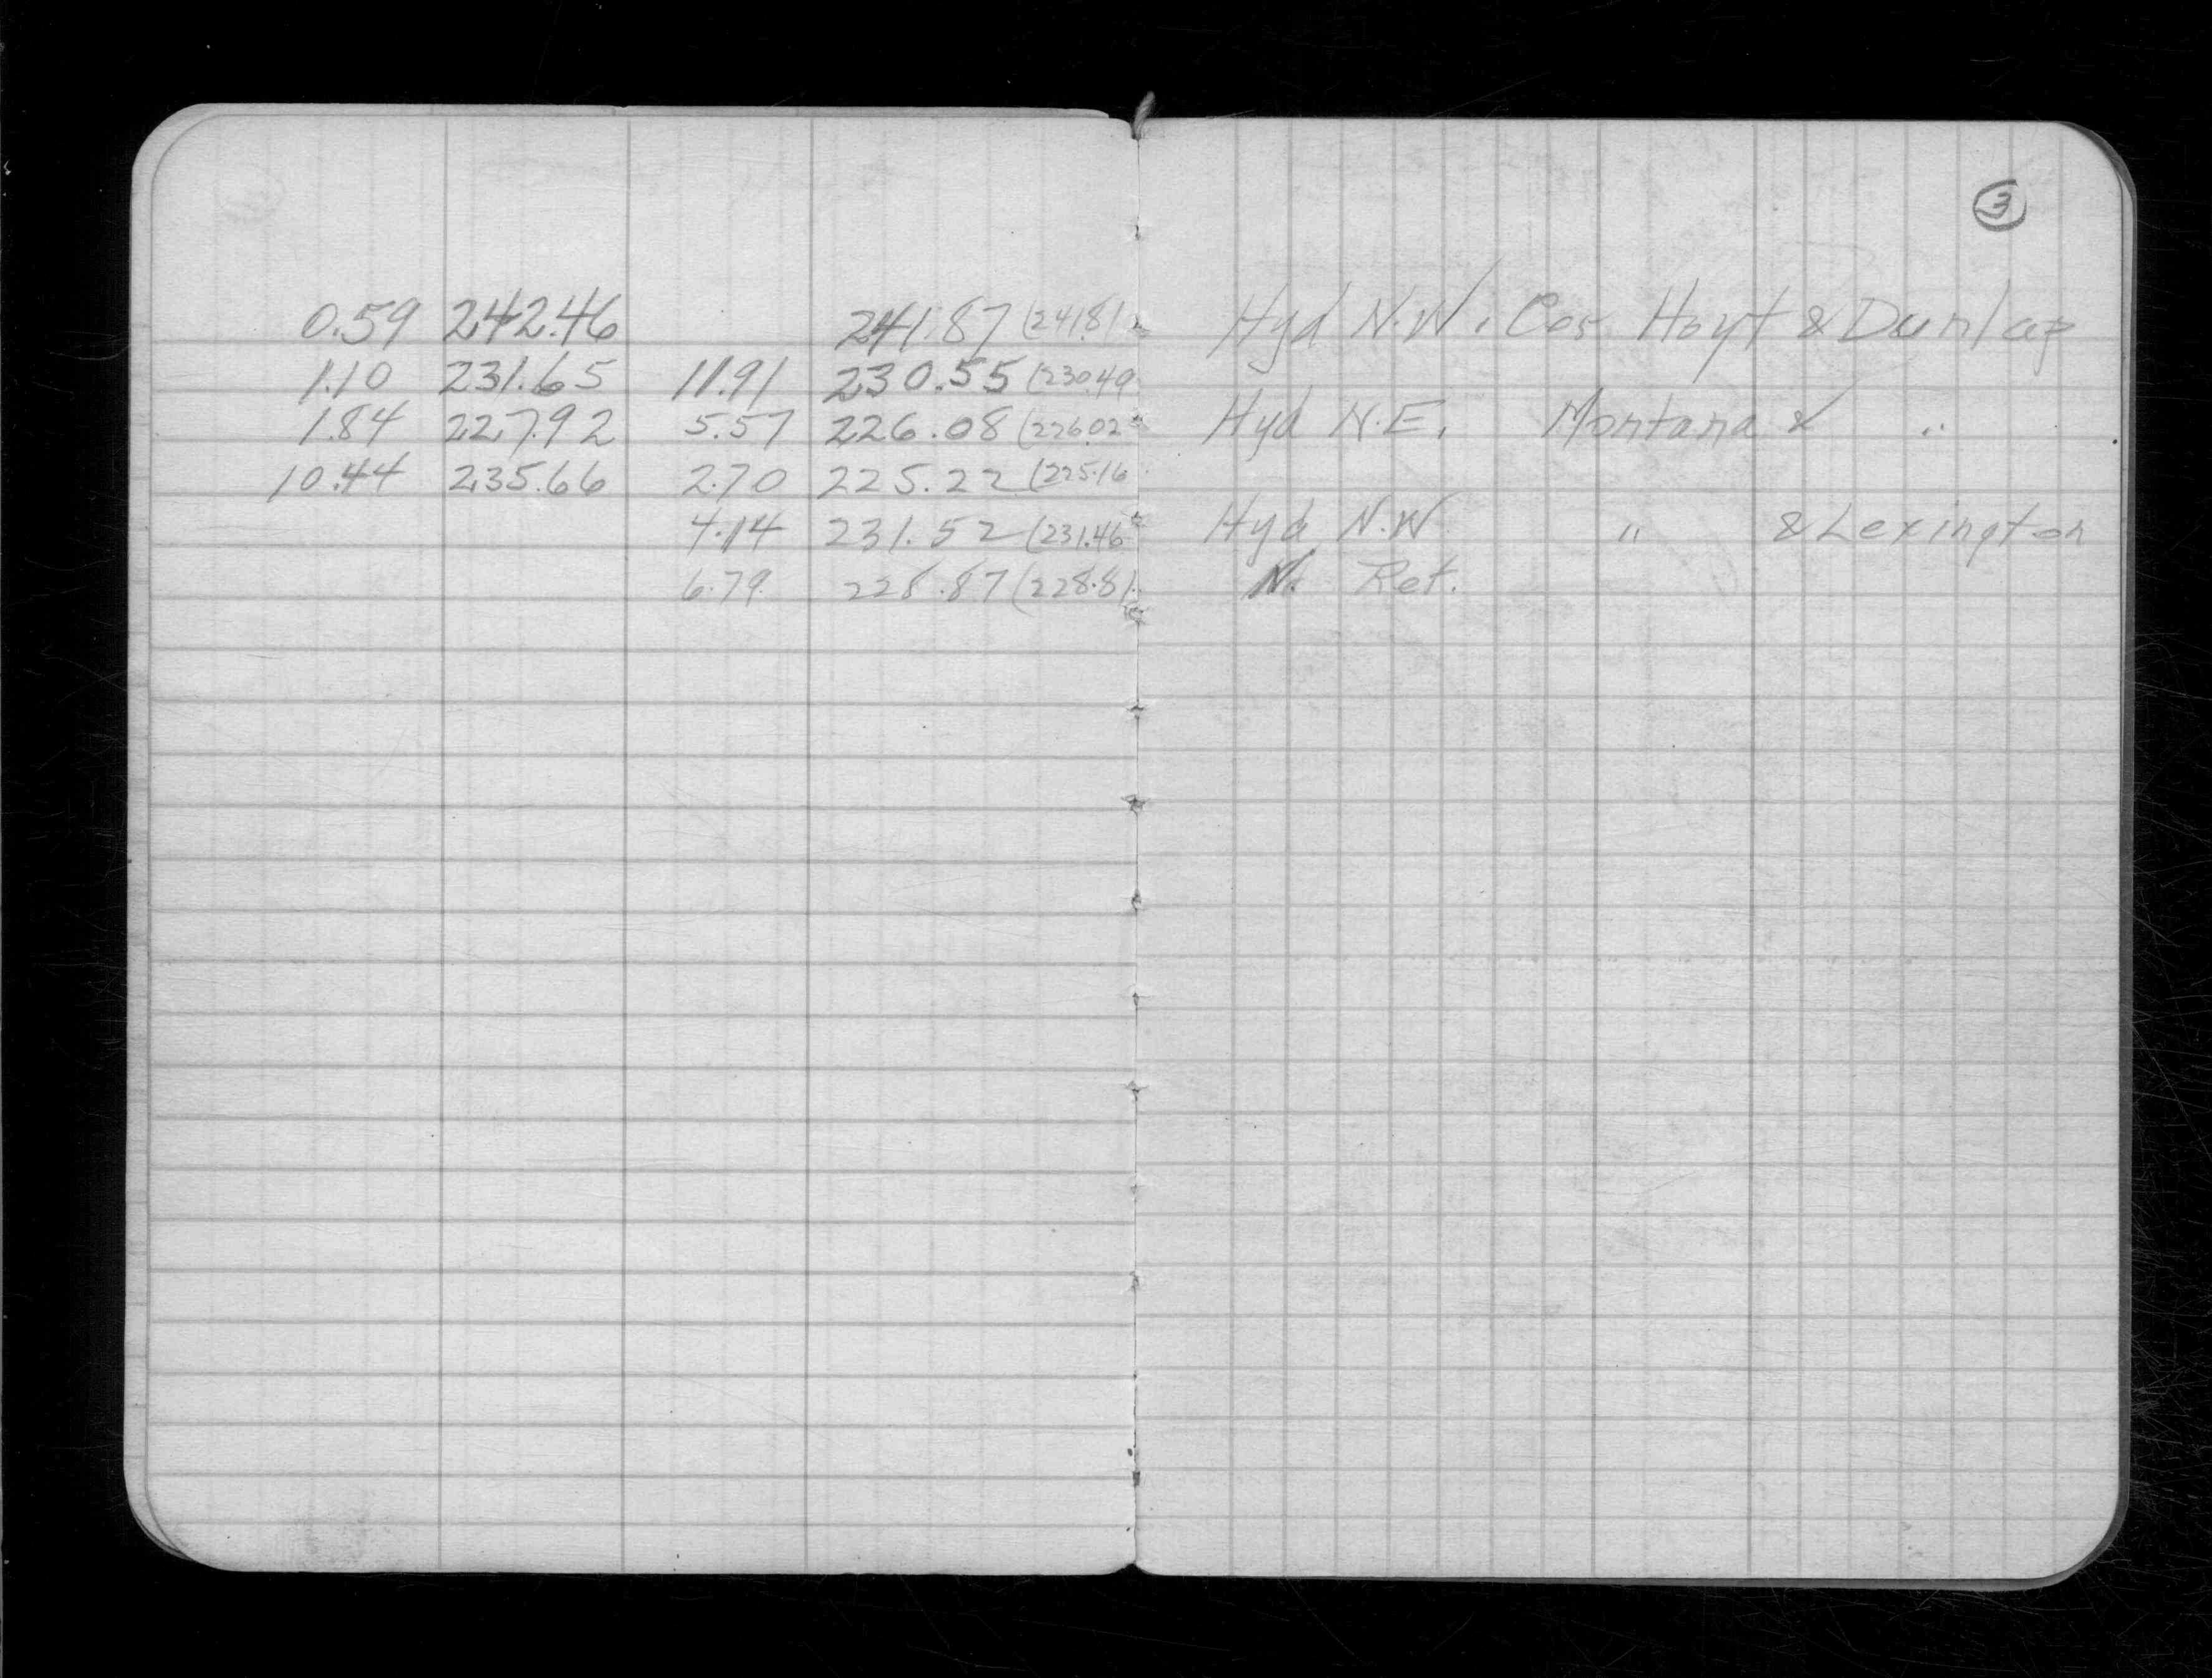 3
0.59 242.46 241.87 (241.81 Hyd N.W. Cor. Hoyt & Dunlap
1.10 231.65 11.91 230.55 (230.49
1.84 227.92 5.57 226.08 (226.02 Hyd N.E. Montana & "
10.44 235.66 2.70 225.22 (225.16
4.14 231.52 (231.46 Hyd N.W. " & Lexington
6.79 228.87 (228.81 N. Ret.